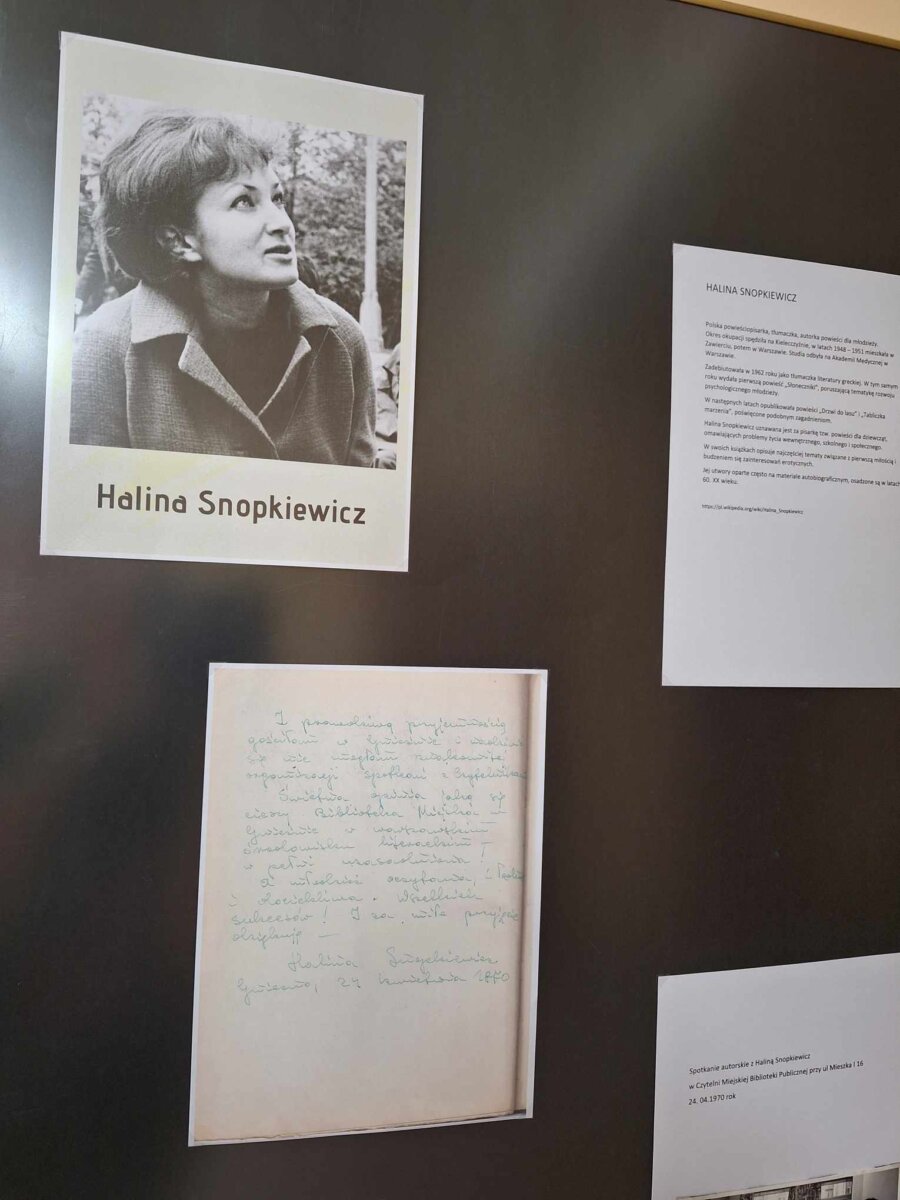 Halina Snopkiewicz
HALINA SNOPKIEWICZ
Polska powieściopisarka, tłumaczka, autorka powieści dla młodzieży.
Okres okupacji spędziła na Kielecczyźnie, w latach 1948 – 1951 mieszkała w
Zawierciu, potem w Warszawie. Studia odbyła na Akademii Medycznej w
Warszawie.
Zadebiutowała w 1962 roku jako tłumaczka literatury greckiej. W tym samym
roku wydała pierwszą powieść „Słoneczniki”, poruszającą tematykę rozwoju
psychologicznego młodzieży.
W następnych latach opublikowała powieści „Drzwi do lasu” i „Tabliczka
marzenia”, poświęcone podobnym zagadnieniom.
Halina Snopkiewicz uznawana jest za pisarkę tzw. powieści dla dziewcząt,
omawiających problemy życia wewnętrznego, szkolnego i społecznego.
W swoich książkach opisuje najczęściej tematy związane z pierwszą miłością i
budzeniem się zainteresowań erotycznych.
Jej utwory oparte często na materiale autobiograficznym, osadzone są w latach
60. XX wieku.
https://pl.wikipedia.org/wiki/Halina_Snopkiewicz
Z prawdziwą przyjemnością
gościłam w Gnieźnie i
się nie mogłam
organizacji spotkań z Czytelnikami
Świetna opinia jaką się
cieszy Biblioteka Miejska w
Gnieźnie w warszawskim
środowisku literackim –
w pełni uzasadniona!
A młodzież oczytana,
i dociekliwa. Wszelkich
sukcesów! I za miłe przyjęcie
dziękuję –
Halina Snopkiewicz
Gniezno, 24 kwietnia 1970
Spotkanie autorskie z Haliną Snopkiewicz
w Czytelni Miejskiej Biblioteki Publicznej przy ul Mieszka I 16
24. 04.1970 rok